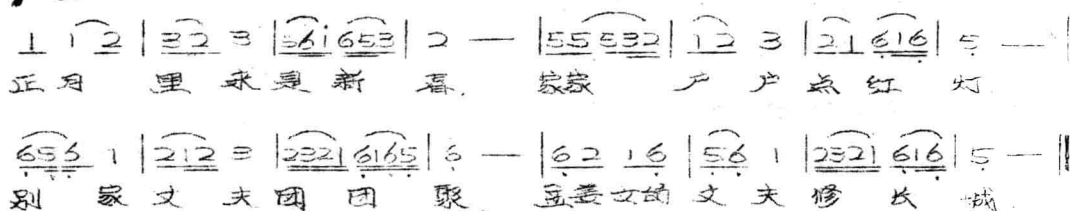 1 1 2 | 3 2 3 | 5 6 1 6 5 3 | 2 — | 5 5 5 3 2 | 1 2 3 | 2 1 6 1 6 | 5 — |
正月 里来是新 喜. 家家 户户点红 灯
6 5 6 1 | 2 1 2 3 | 2 3 2 1 6 1 6 5 | 6 — | 6 2 1 6 | 5 6 1 | 2 3 2 1 6 1 6 | 5 — ‖
别 家 丈 夫 团 团 聚 孟姜女的 丈 夫 修 长 城